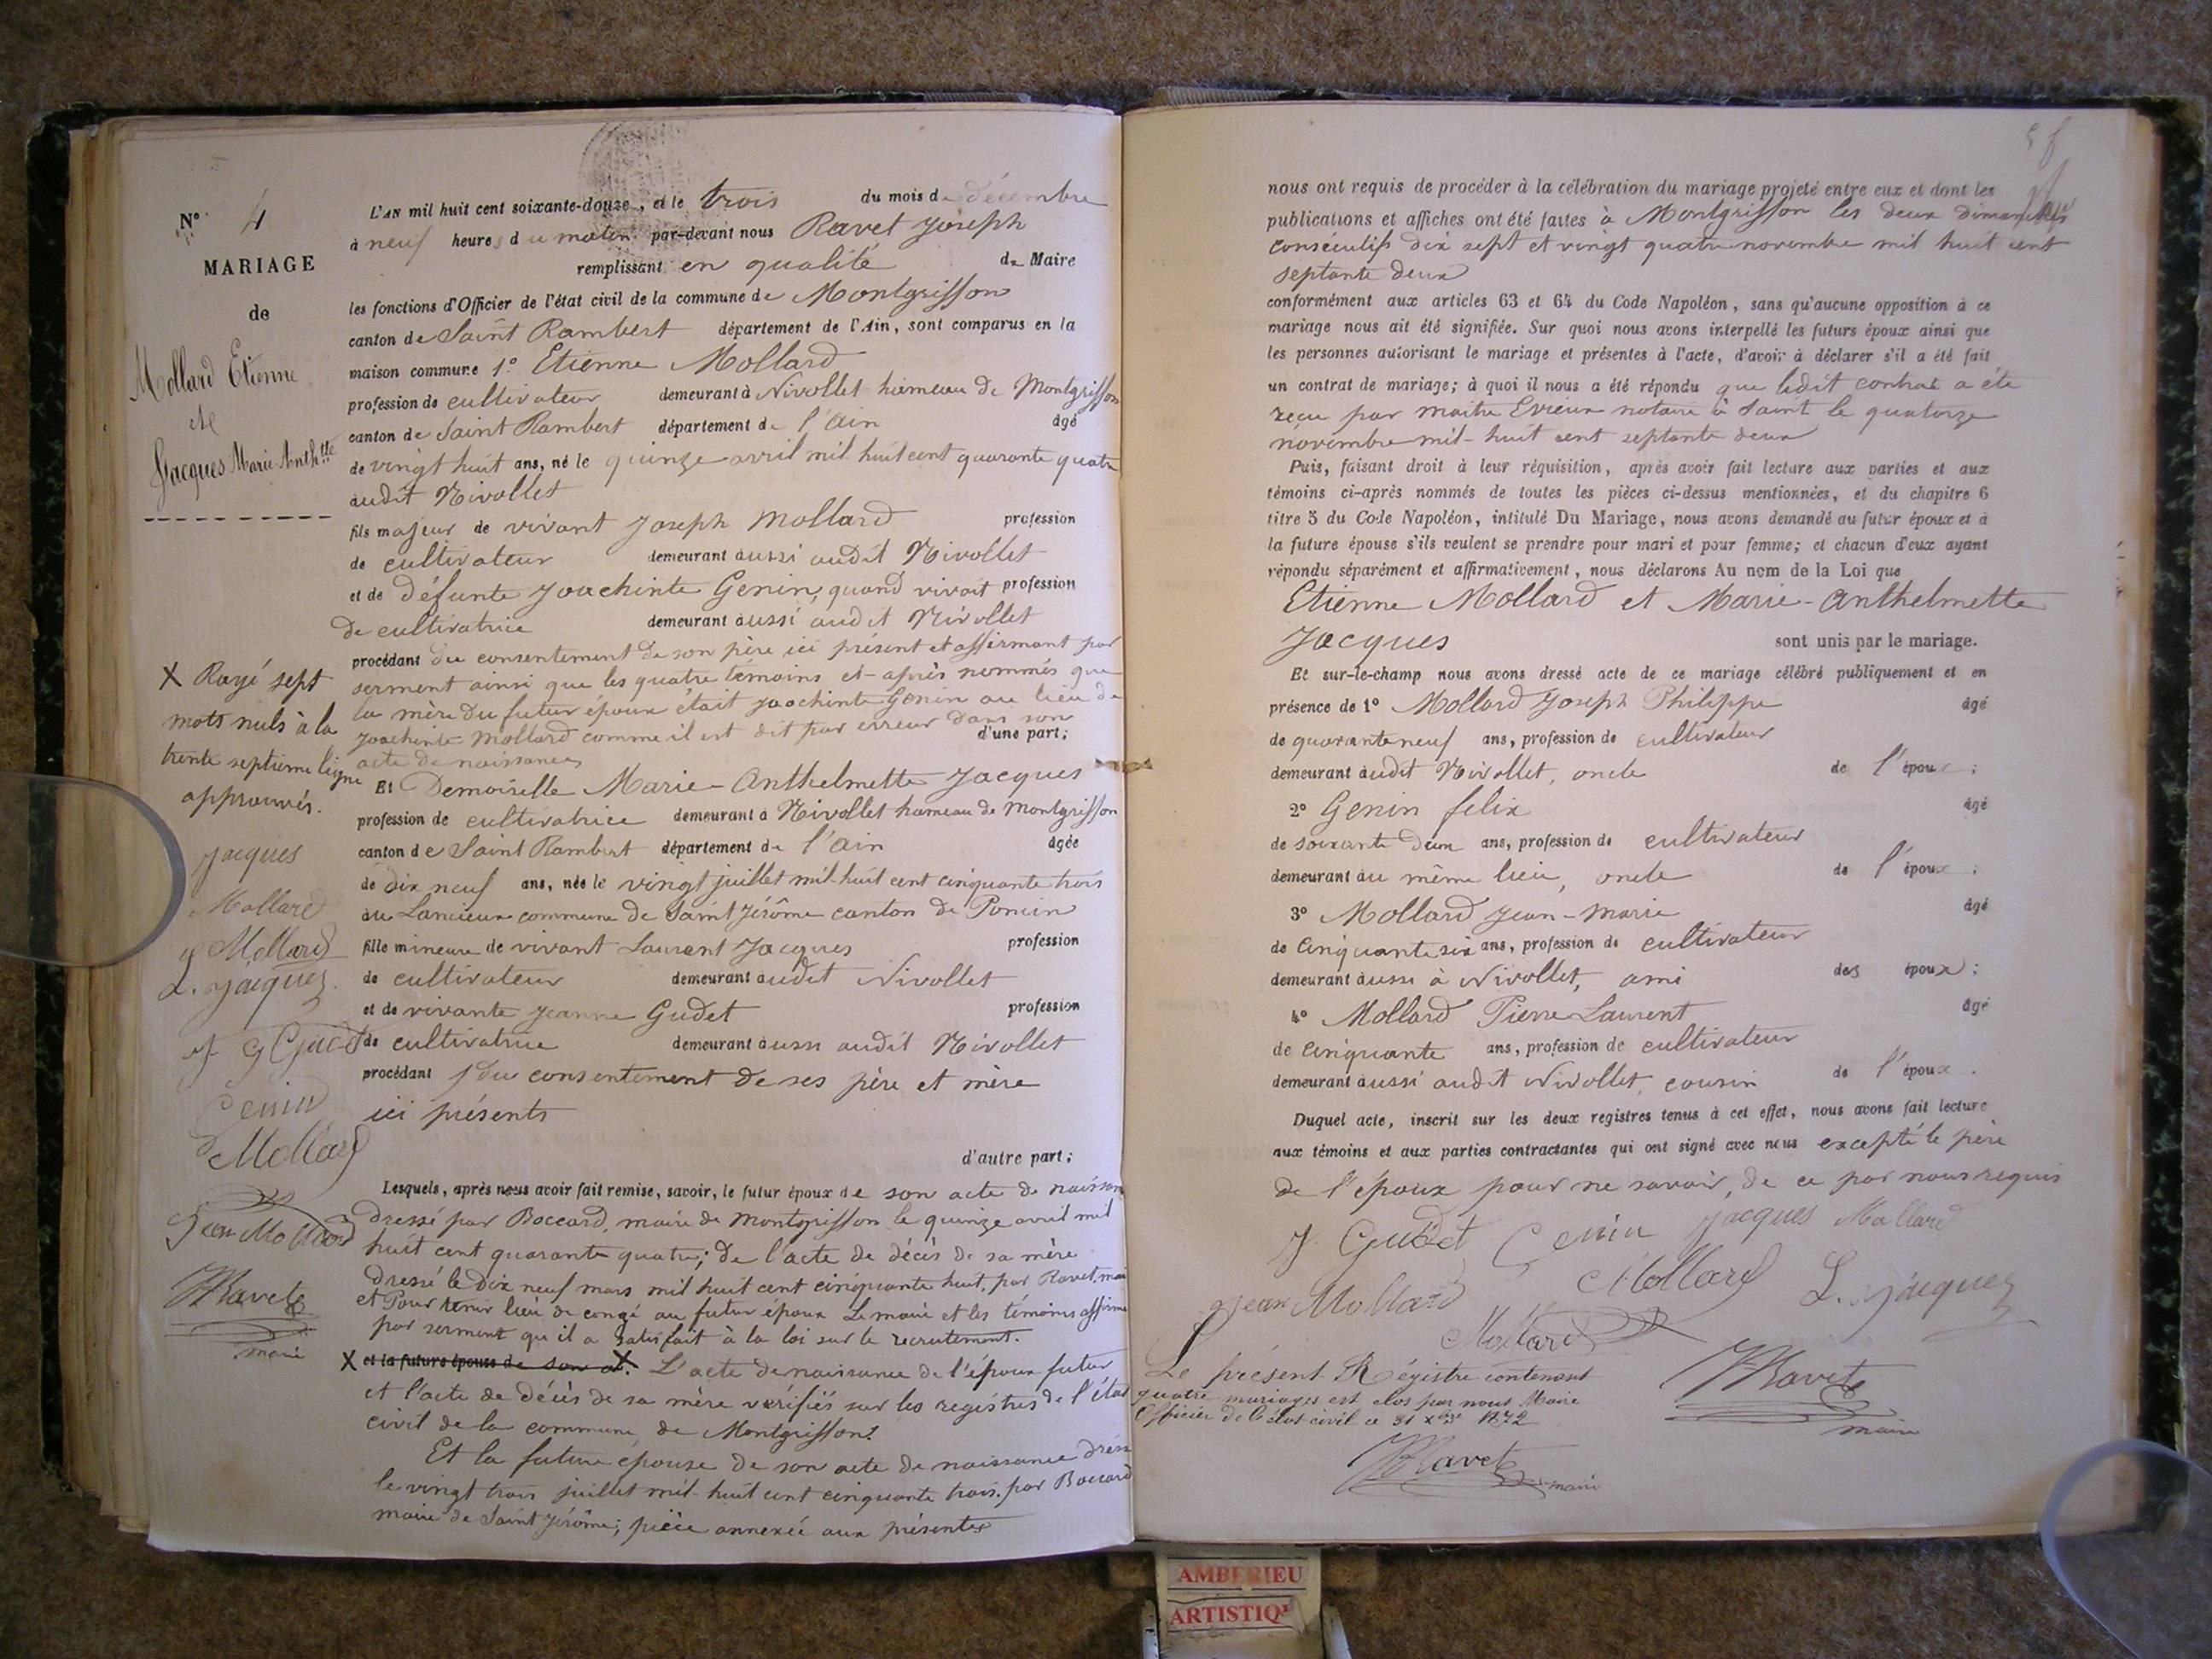 N° 4
MARIAGE
de
Mollard Etienne
et
Jacques Marie-Anth.tte
L'AN mil huit cent soixante-douze, et le trois du mois de décembre
à neuf heures du matin par-devant nous Ravet Joseph
remplissant en qualité de Maire
les fonctions d'Officier de l'état civil de la commune de Montgriffon
canton de Saint Rambert département de l'Ain, sont comparus en la
maison commune 1° Etienne Mollard
profession de cultivateur demeurant à Nivollet hameau de Montgriffon
canton de Saint Rambert département de l'Ain âgé
de vingt huit ans, né le quinze avril mil huit cent quarante quatre
audit Nivollet
fils majeur de vivant Joseph Mollard profession
de cultivateur demeurant aussi audit Nivollet
et de défunte Joachinte Genin, quand vivait profession
de cultivatrice demeurant aussi audit Nivollet
procédant du consentement de son père ici présent et affirmant par
serment ainsi que les quatre témoins ci-après nommés que
la mère du futur époux était Joachinte Genin au lieu de
Joachinte Mollard comme il est dit par erreur dans son
acte de naissance d'une part;
Et Demoiselle Marie-Anthelmette Jacques
profession de cultivatrice demeurant à Nivollet hameau de Montgriffon
canton de Saint Rambert département de l'Ain âgée
de dix neuf ans, née le vingt juillet mil-huit cent cinquante trois
au Lancieux commune de Saint Jérôme canton de Poncin
fille mineure de vivant Laurent Jacques profession
de cultivateur demeurant audit Nivollet
et de vivante Jeanne Gudet profession
de cultivatrice demeurant aussi audit Nivollet
procédant du consentement de ses père et mère
ici présents
d'autre part;
Lesquels, après nous avoir fait remise, savoir, le futur époux de son acte de naissan
dressé par Boccard, maire de Montgriffon le quinze avril mil
huit cent quarante quatre; de l'acte de décès de sa mère
dressé le dix neuf mars mil huit cent cinquante huit, par Ravet, mai
et Pour tenir lieu de congé au futur époux Le maire et les témoins affirme
par serment qu'il a satisfait à la loi sur le recrutement.
X et la future épouse de son a X. L'acte de naissance de l'époux futur
et l'acte de décès de sa mère vérifiés sur les registres de l'état
civil de la commune de Montgriffon.
Et la future epouse de son acte de naissance dress
le vingt trois juillet mil-huit cent cinquante trois par Boccard
maire de Saint Jérôme; pièce annexée aux présentes
X Rayé sept
mots nuls à la
trente septième ligne
approuvés.
Jacques
Mollard
Mollard
L. Jacques
J Gudet
Genin
Mollard
Jean Mollard
Ravet
maire
nous ont requis de procéder à la célébration du mariage projeté entre eux et dont les
publications et affiches ont été faites à Montgriffon les deux dimanches
consécutifs dix sept et vingt quatre novembre mil huit cent
septante deux
conformément aux articles 63 et 64 du Code Napoléon, sans qu'aucune opposition à ce
mariage nous ait été signifiée. Sur quoi nous avons interpellé les futurs époux ainsi que
les personnes autorisant le mariage et présentes à l'acte, d'avoir à déclarer s'il a été fait
un contrat de mariage; à quoi il nous a été répondu que ledit contrat a été
reçu par maître notaire à Saint le quatorze
novembre mil-huit cent septante deux
Puis, faisant droit à leur réquisition, après avoir fait lecture aux parties et aux
témoins ci-après nommés de toutes les pièces ci-dessus mentionnées, et du chapitre 6
titre 5 du Code Napoléon, intitulé Du Mariage, nous avons demandé au futur époux et à
la future épouse s'ils veulent se prendre pour mari et pour femme; et chacun d'eux ayant
répondu séparément et affirmativement, nous déclarons Au nom de la Loi que
Etienne Mollard et Marie-Anthelmette
Jacques sont unis par le mariage.
Et sur-le-champ nous avons dressé acte de ce mariage célébré publiquement et en
présence de 1° Mollard Joseph Philippe âgé
de quarante neuf ans, profession de cultivateur
demeurant audit Nivollet, oncle de l'époux;
2° Genin felix âgé
de soixante deux ans, profession de cultivateur
demeurant au même lieu, oncle de l'époux;
3° Mollard Jean-Marie âgé
de cinquante six ans, profession de cultivateur
demeurant aussi à Nivollet, ami des époux;
4° Mollard Pierre Laurent âgé
de cinquante ans, profession de cultivateur
demeurant aussi audit Nivollet, cousin de l'époux.
Duquel acte, inscrit sur les deux registres tenus à cet effet, nous avons fait lecture
aux témoins et aux parties contractantes qui ont signé avec nous excepté le père
de l'époux pour ne savoir, de ce par nous requis
J. Gudet Genin Jacques Mollard
Jean Mollard Mollard L. Jacques
Mollard
Le présent Régistre contenant
quatre mariages est clos par nous Maire
Officier de l'état civil ce 31 xbre 1872
Ravet
maire
Ravet
maire
AMBERIEU
ARTISTIQ